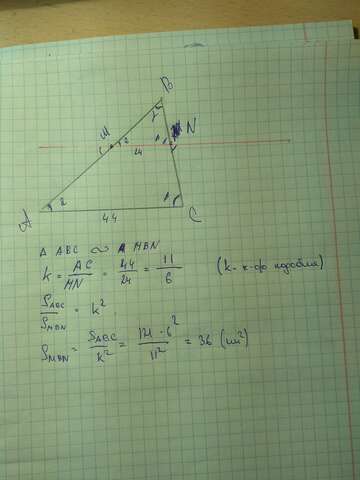 B
M
N
24
A
C
44
Δ ABC ∾ Δ MBN
k = AC/MN = 44/24 = 11/6 (k - к-ф подобия)
S_ABC/S_MBN = k²
S_MBN = S_ABC/k² = 121 · 6²/11² = 36 (см²)